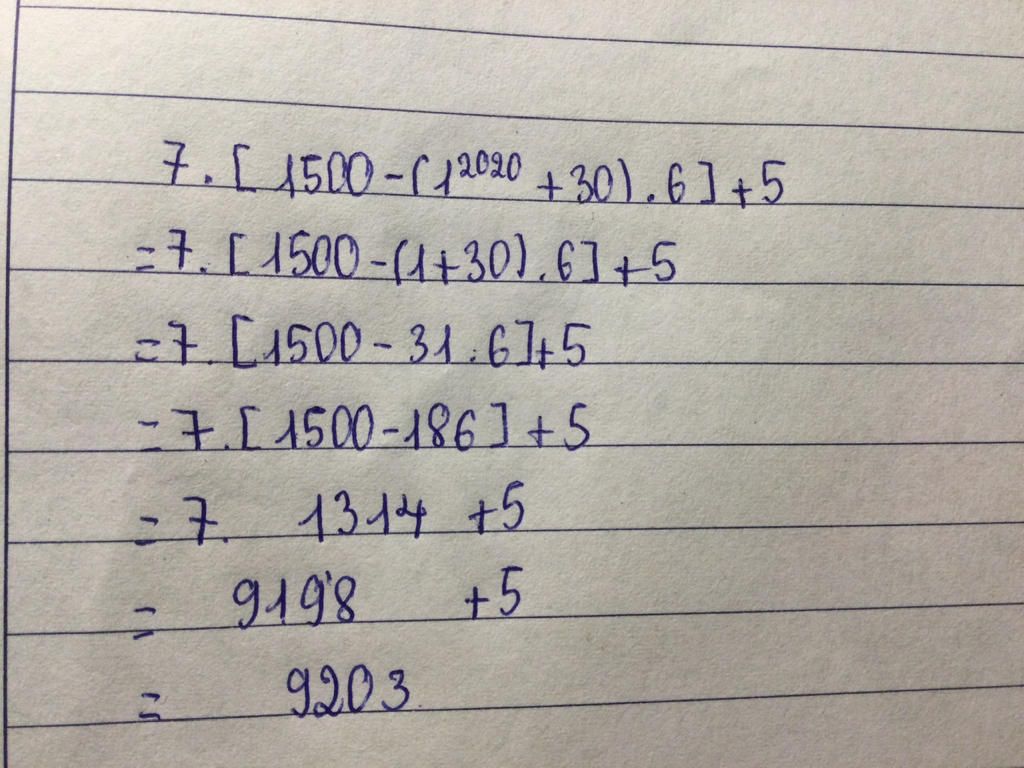 7. [1500-(1²⁰²⁰+30).6]+5
=7. [1500-(1+30).6]+5
=7. [1500-31.6]+5
=7. [1500-186]+5
=7. 1314 +5
= 9198 +5
= 9203